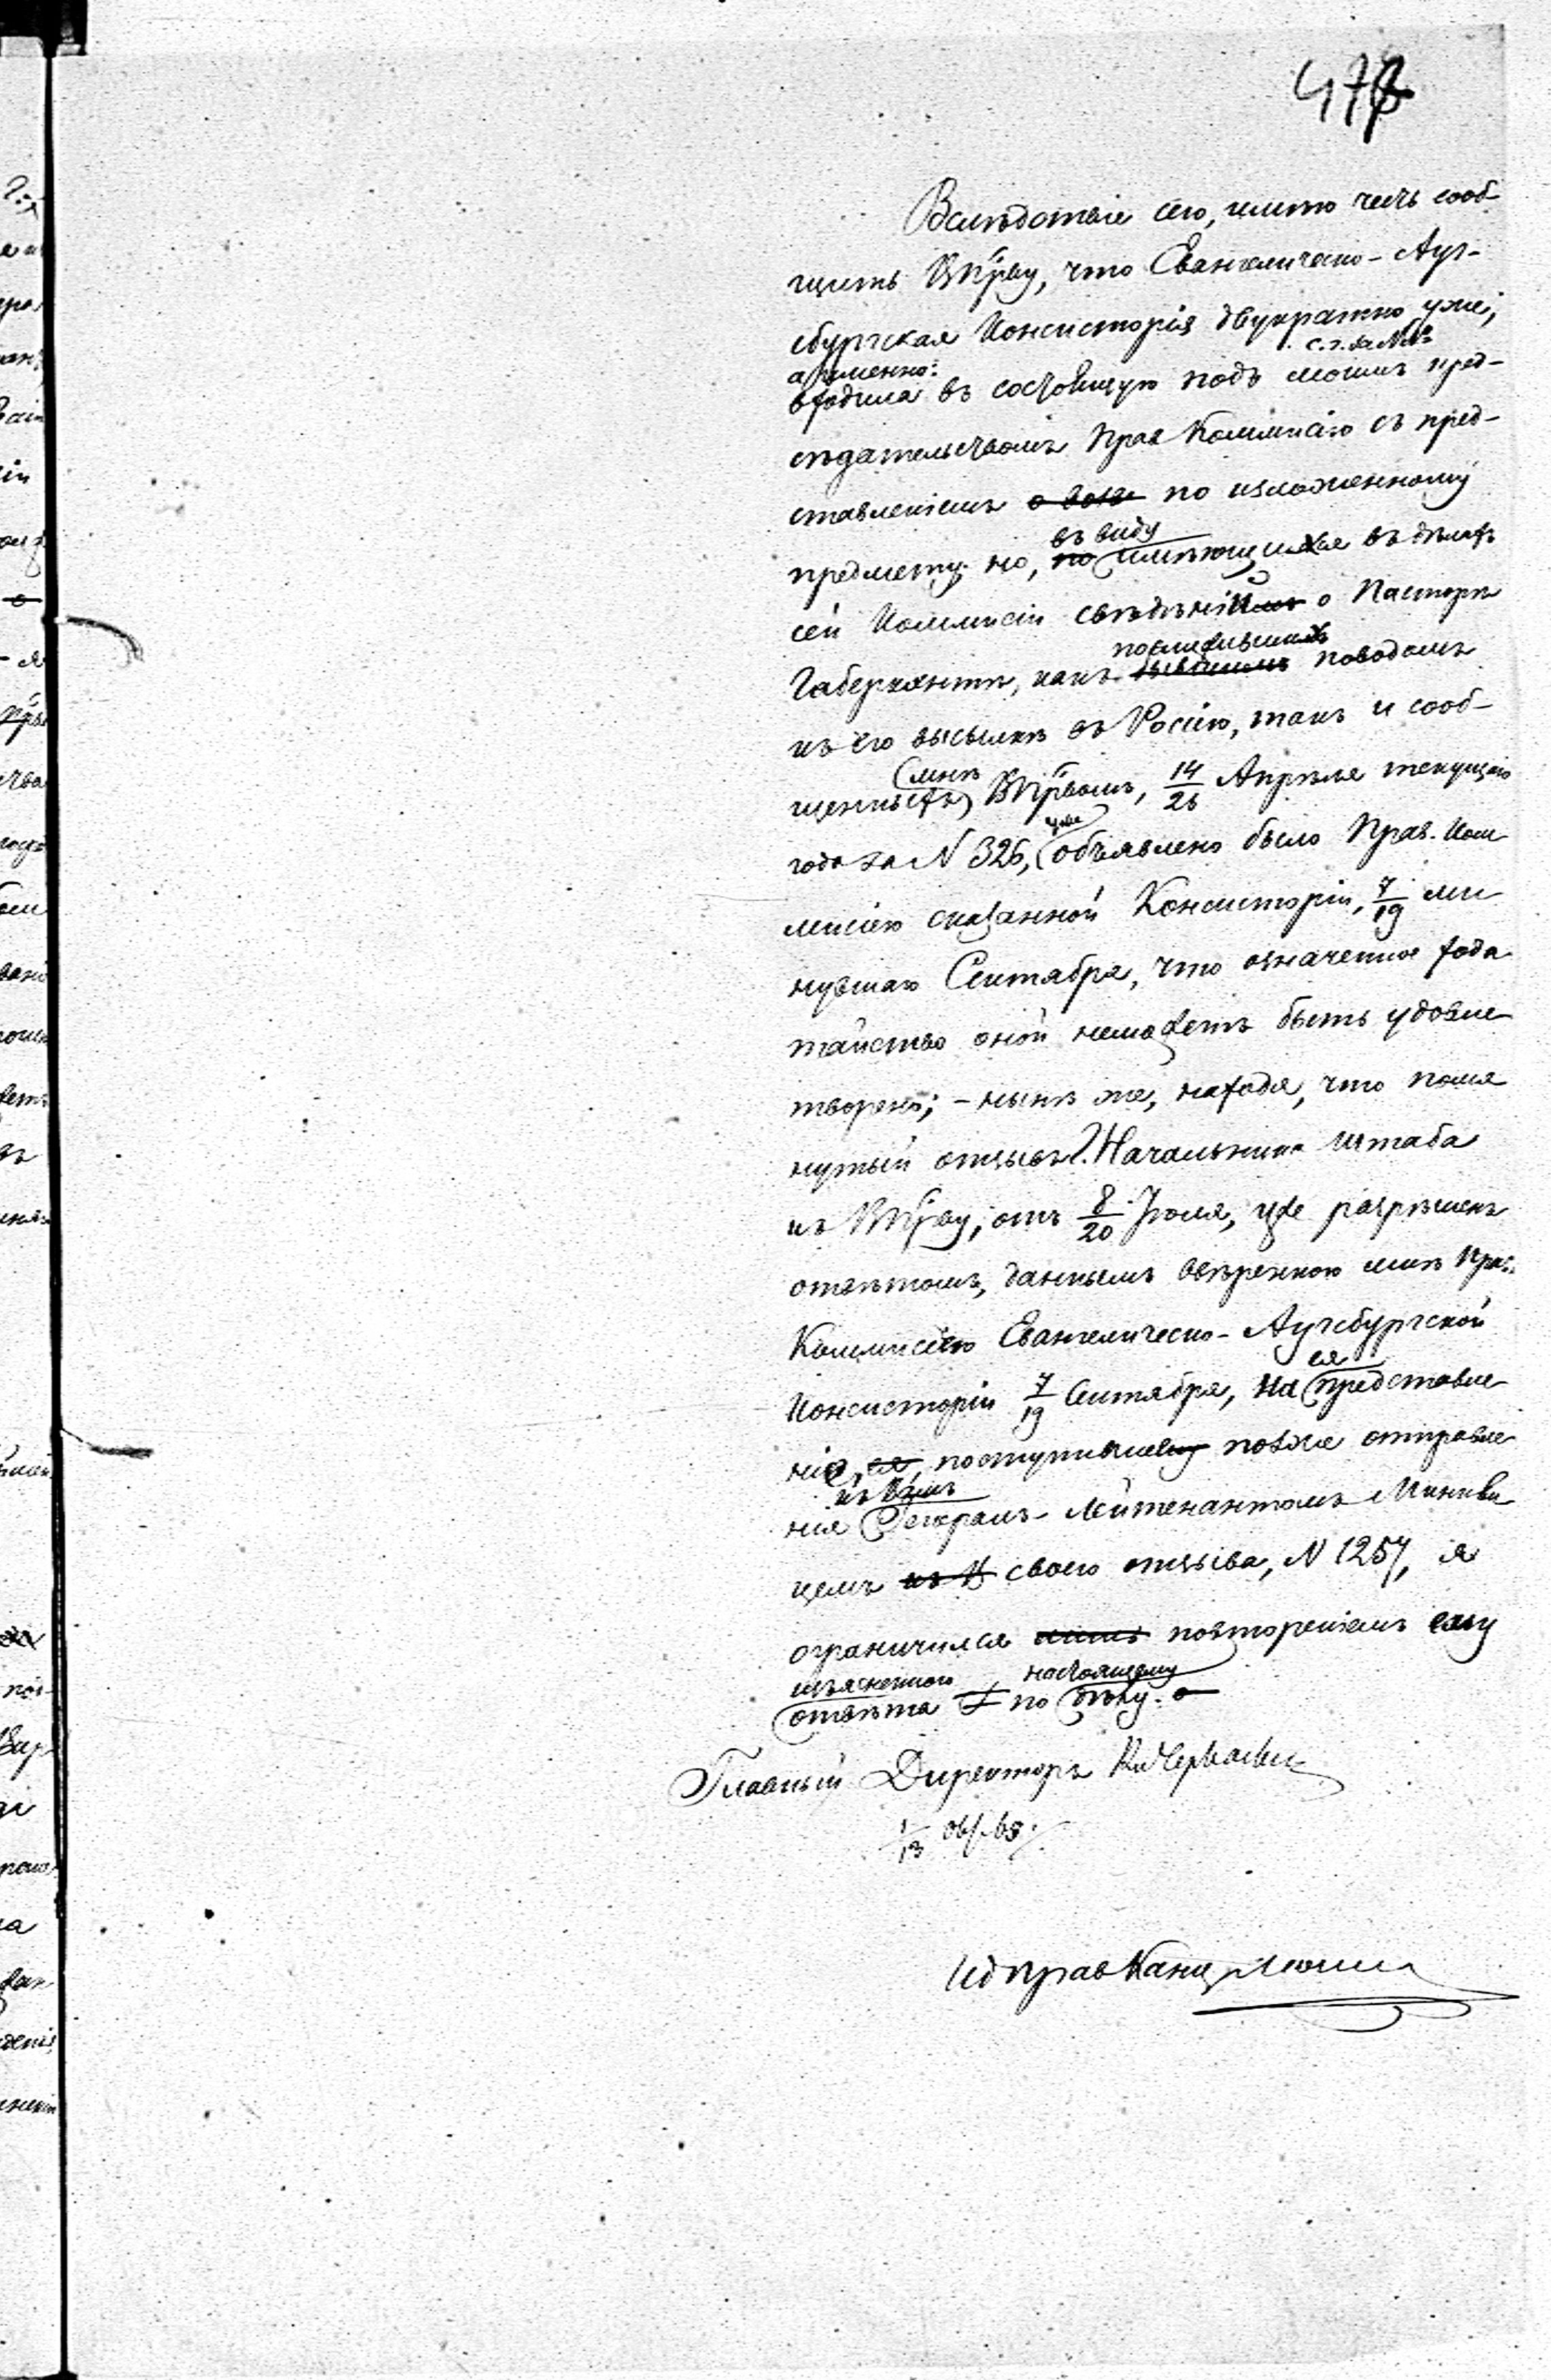 478
Вслѣдствіе сего, имѣю честь сооб-
щить ВПрву, что Евангелическо-Ауг-
сбургская Консисторія двукратно уже,
с. г. за №№
а именно:
входила въ состоящую подъ моимъ пред-
сѣдательствомъ Прав Коммисію съ пред-
ставленіемъ по изложенному
въ виду
предмету; но, по имѣющимся въ дѣлахъ
сей Коммисіи свѣдѣній о Пасторѣ
послужившихъ
Габеркантѣ, какъ поводомъ
къ его высылкѣ въ Россію, такъ и сооб-
мнѣ
щенныхъ ВПрвомъ, 14/26 Апрѣля текущаго
уже
года за N 326, объявлено было Прав. Ком
мисіею сказанной Консисторіи, 7/19 ми
нувшаго Сентября, что означенное хода
тайство оной неможетъ быть удовле
творено; – нынѣ же, находя, что помя
нутый отзывъ Г. Начальника Штаба
къ ВПрву, отъ 8/20 Іюля, уже разрѣшенъ
отвѣтомъ, даннымъ ввѣренною мнѣ Прав.
Коммисіею Евангелическо-Аугсбургской
ея
Консисторіи 7/19 Сентября, на представле
ніе, ея, поступившее позже отправле
къ Вамъ
нія Генералъ-Лейтенантомъ Минкви
цемъ къ В своего отзыва, N 1257, я
ограничился повтореніемъ ему
изъясненнаго настоящему
отвѣта по дѣлу.
Главный Директоръ
1/13
Прав Канц